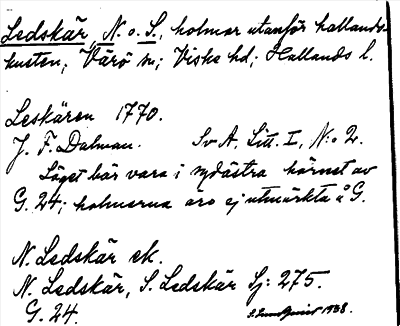 Ledskär, N. o. S., holmar utanför hallands-
kusten; Värö sn; Viske hd; Hallands l.
Leskären 1770.
J. F. Dalman. Sv A. Litt. I, N:o 2.
Läget bär vara i sydästra hörnet av
G. 24; holmarna äro ej utmärkta å G.
N. Ledskär ek.
N. Ledskär, S. Ledskär Sj: 275.
G. 24. 1938.